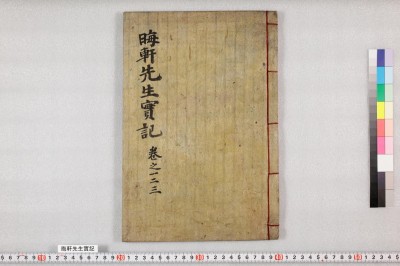 晦軒先生實記
卷之一二三
晦軒先生實記